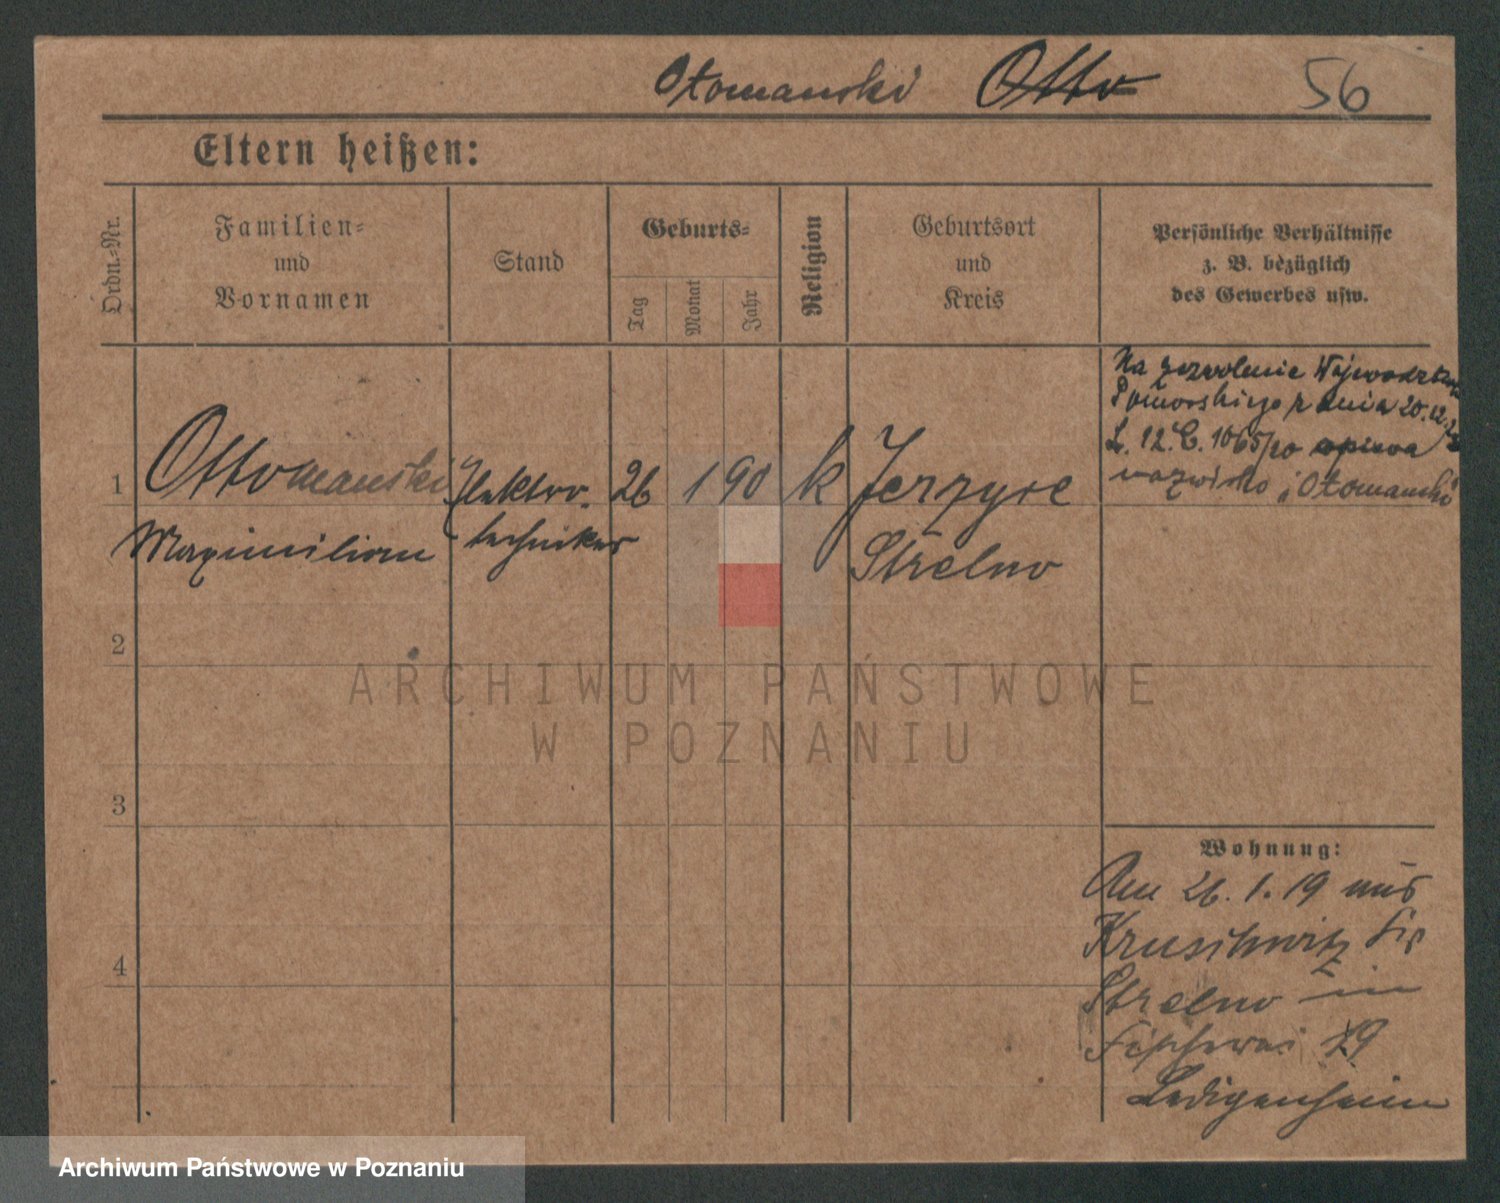 Otomanski Otto 56
Eltern heißen:
Ordn.-Nr.
Familien-
und
Vornamen
Stand
Geburts-
Tag
Monat
Jahr
Religion
Geburtsort
und
Kreis
Persönliche Verhältnisse
z. B. bezüglich
des Gewerbes usw.
Na zezwolenie
Pomorskiego z dnia 20.12.
L. 12.C. 1065/20 opiewa
nazwisko „Otomanski"
1 Ottomanski Elektro- 26 1 90 k Jerzyce
Maximilian techniker Strelno
2
ARCHIWUM PAŃSTWOWE
W POZNANIU
3
Wohnung:
Am 26.1.19 aus
Kruschwitz
Strelno in
Fischerei 19
Ledigenheim
4
Archiwum Państwowe w Poznaniu